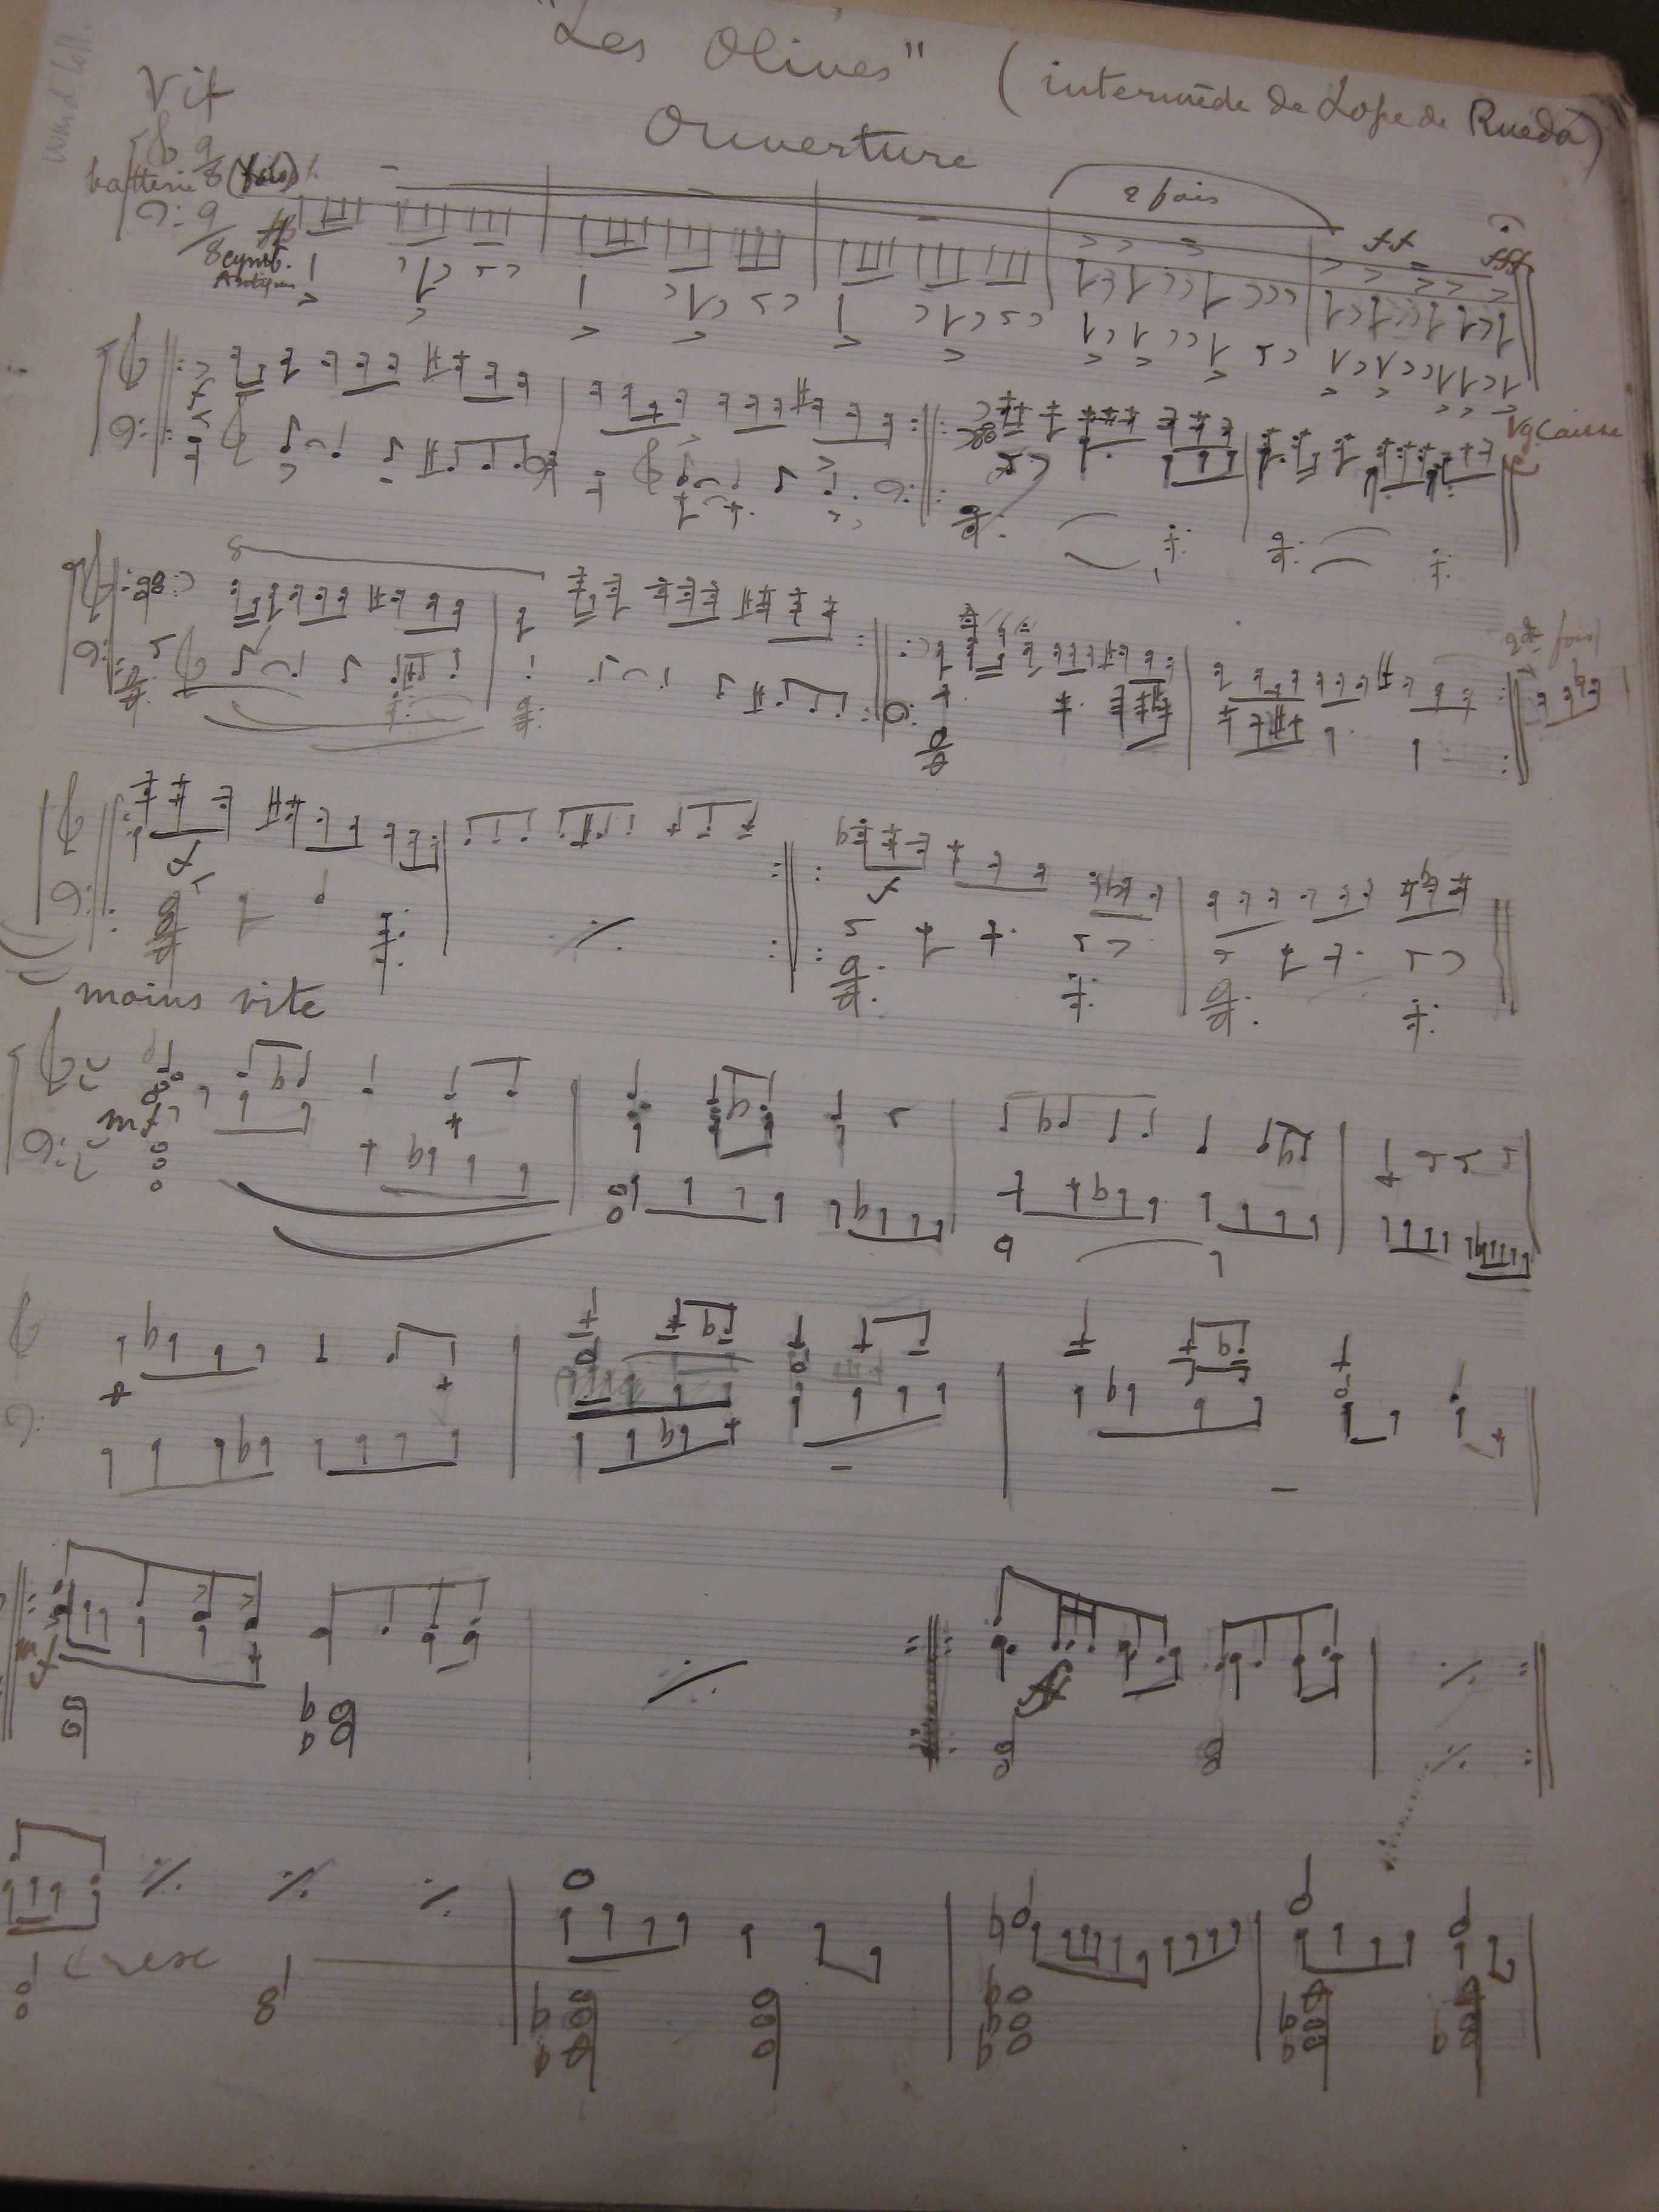 "Les Olives" (intermède de Lope de Rueda)
Ouverture
Vif
batterie
9
8
9
8
cymb.
2 fois
ff
fff
f
Gg Caisse
8
2de fois
f
f
moins vite
mf
mf
ff
cresc